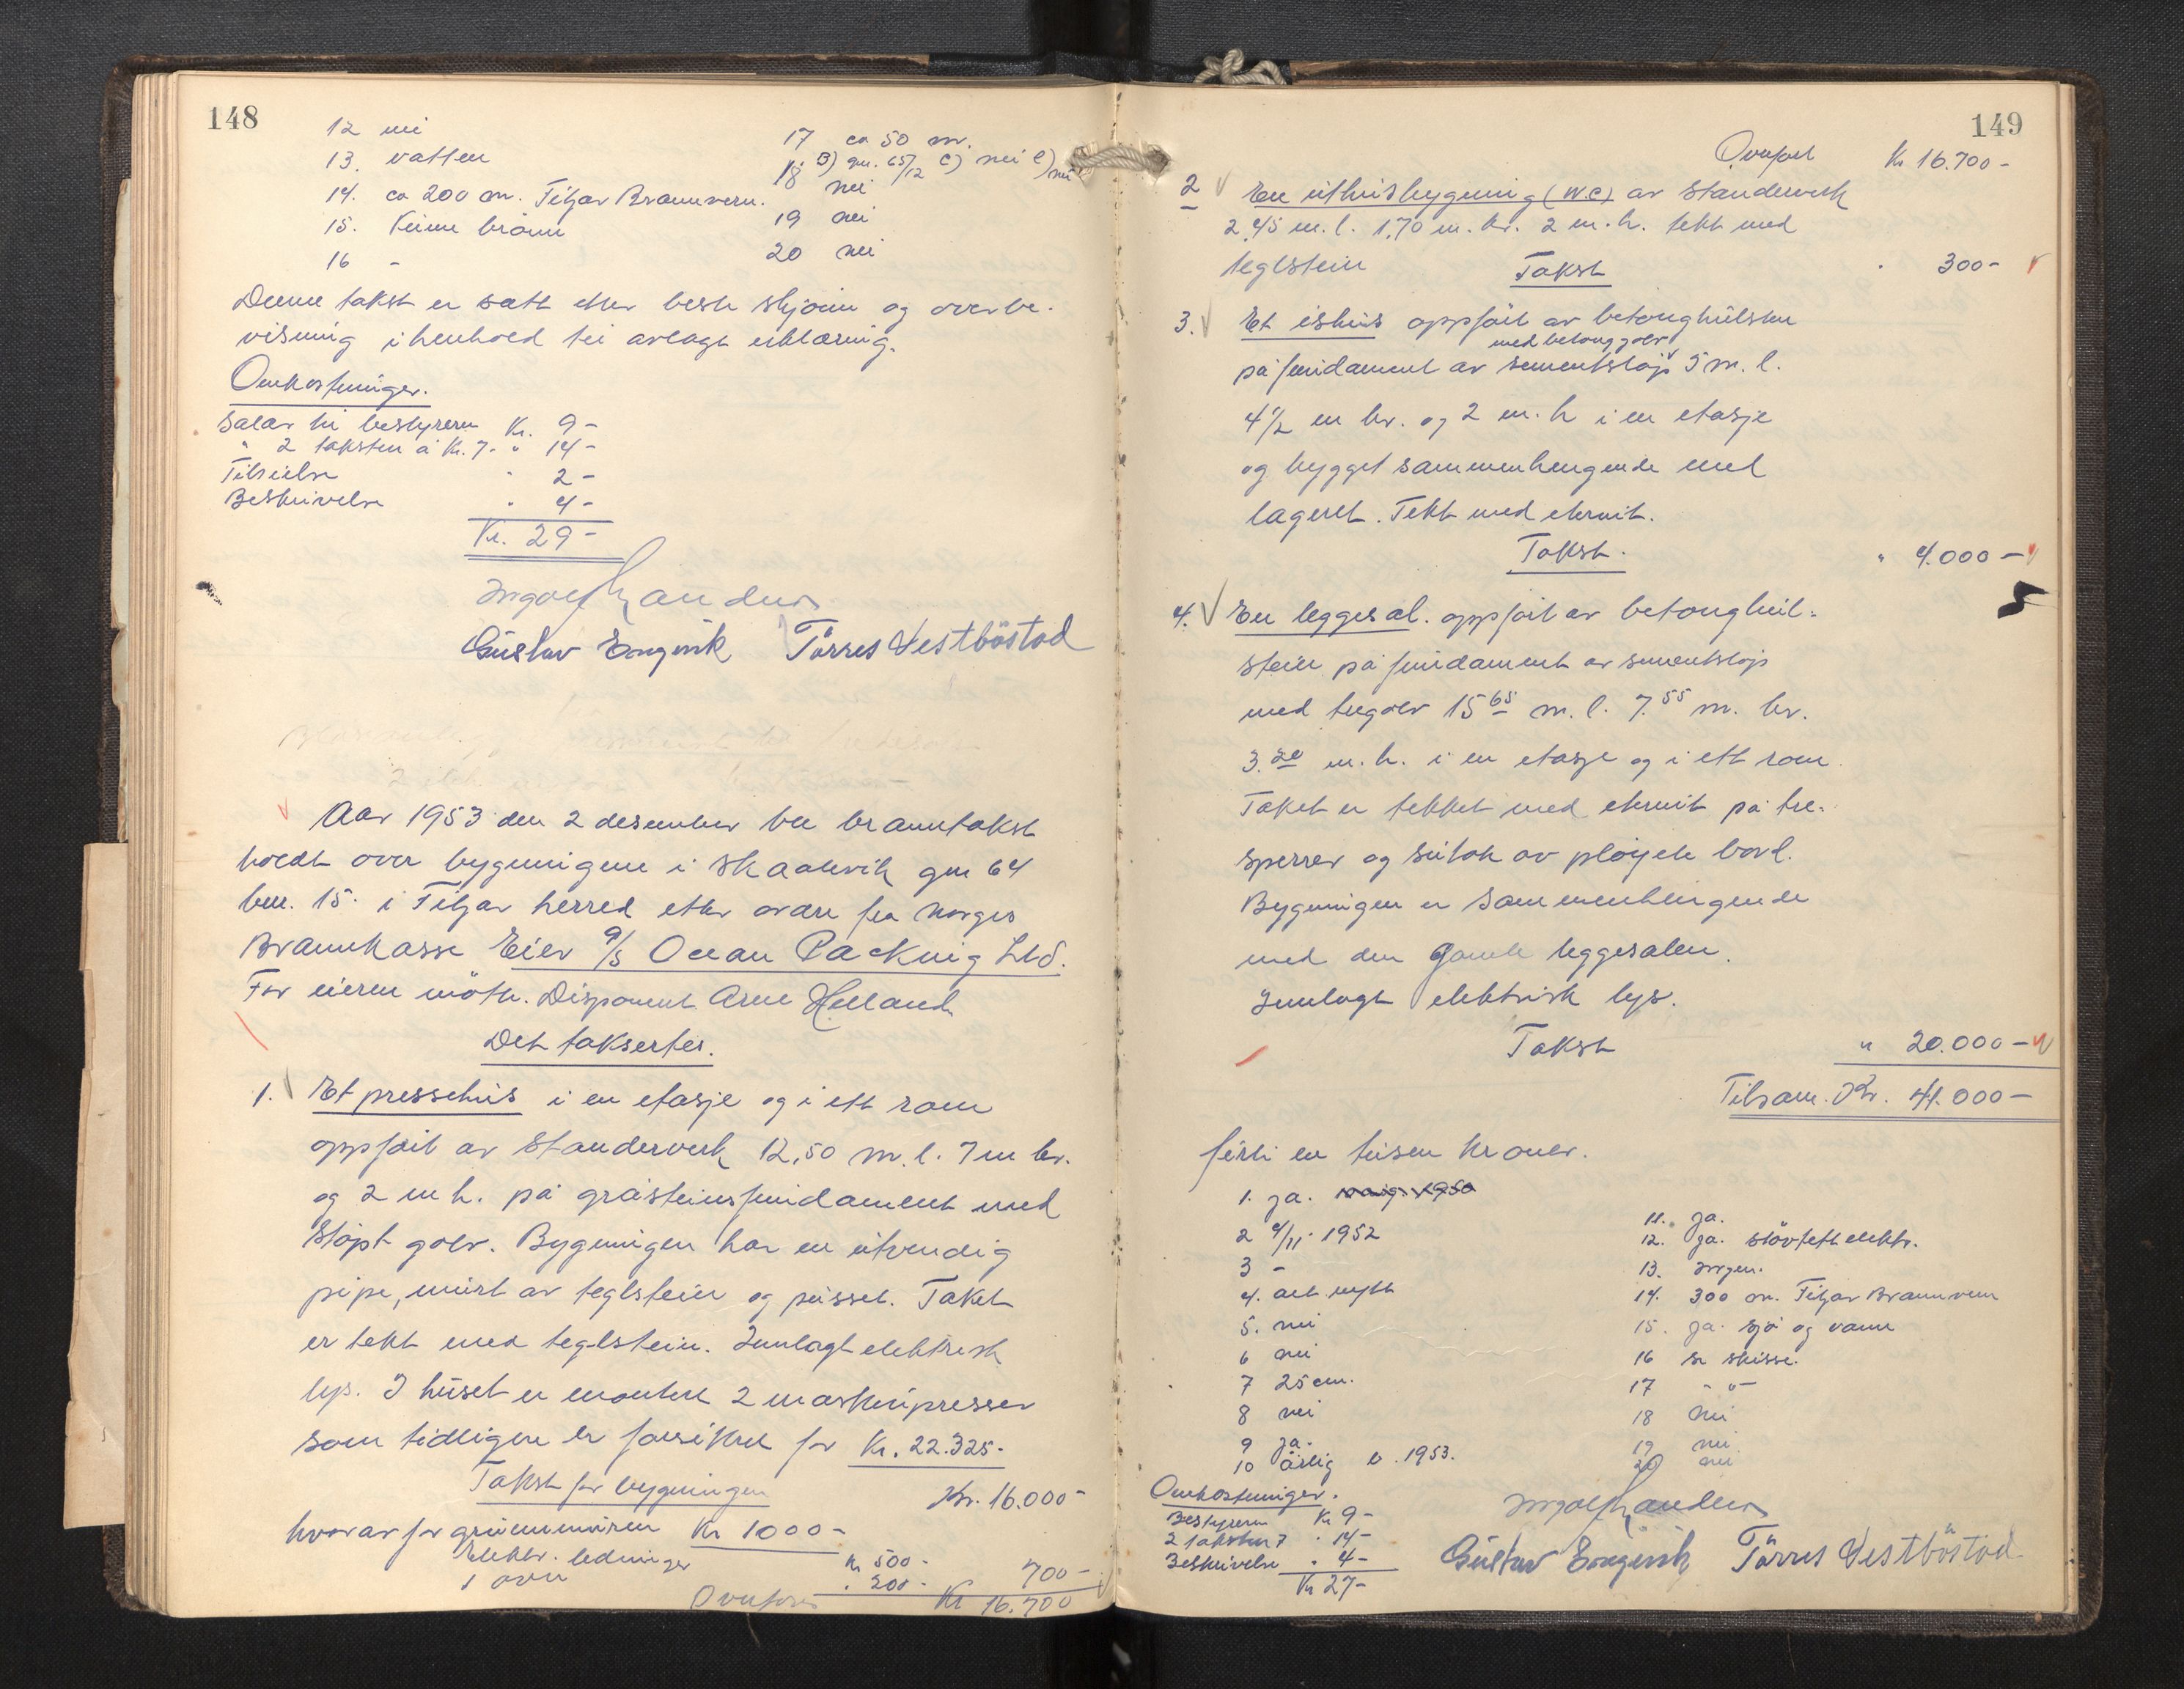 148
12 nei
13. vatten
14. ca 200 m. Fitjar Brannvern.
15. Keine brönn
16 -
17 ca 50 m.
18 nei
19 nei
20 nei
Denne takst er satt etter beste skjönn og overbe-
visning i henhold til avlagt erklæring.
Omkostninger.
Salær til bestyreren Kr. 9-
" 2 takstm a Kr. 7- " 14-
Tilsielse " 2-
Beskrivelse " 4-
Kr. 29-
Gustav Engevik Törres Vestböstad
Aar 1953 den 2 desember ble branntakst
holdt over bygningene i Skaalevik gnr 64
bnr. 15. i Fitjar herred etter ordre fra Norges
Brannkasse Eier A/S Ocean Packing Ltd.
For eieren mötte. Disponent Arne Helland
Det takseres.
1. Et pressehus i en etasje og i ett rom
oppfört av standerverk 12,50 m.l. 7 m br.
og 2 m h. på gråsteinsfundament med
støpt golv. Bygningen har en utvendig
pipe, murt av teglstein og pusset. Taket
er tekt med teglstein. Innlagt elektrisk
lys. I huset er montert 2 maskinpresser
som tidligere er forsikret for Kr. 22.325-
Takst for bygningen Kr. 16.000-
hvorav for grunnmuren Kr 1000-
Elektr. ledninger Kr 500-
1 ovn " 200- 700-
Overføres Kr 16.700
149
Overfört Kr 16.700-
2 En uthusbygning (W.C) av standerverk
2,45 m.l. 1,70 m. br. 2 m.h. tekt med
teglstein Takst " 300-
3. Et ishus oppfört av betonghulsten
med betonggolv
på fundament av sementstøp 5 m. l.
4 1/2 m br. og 2 m. h i en etasje
og bygget sammenhengende med
lageret. Tekt med eternit.
Takst. " 4.000-
4. En leggesal. oppfört av betonghul-
stein på fundament av sementstøp
med tregolv 15 65 m. l. 7.55 m. br.
3.20 m.h. i en etasje og i ett rom.
Taket er tekket med eternit på tre-
sperrer og sutak av pløyete bord.
Bygningen er sammenhengende
med den gamle leggesalen.
Innlagt elektrisk lys.
Takst " 20.000-
Tilsam. Kr. 41.000-
førti en tusen kroner.
1. ja.
2 4/11. 1952
3 -
4. alt nytt
5. nei
6 nei
7 25 cm.
8 nei
9 ja.
10 årlig 1953.
11. ja.
12. ja. støvtett elektr.
13. Ingen.
14. 300 m. Fitjar Brannvern
15. ja. sjø og vann
16 se skisse.
17 - " -
18 nei
19 nei
20 nei
Omkostninger.
Bestyreren Kr 9-
2 takstm 7 " 14-
Beskrivelse " 4-
Kr 27-
Gustav Engevik Törres Vestböstad